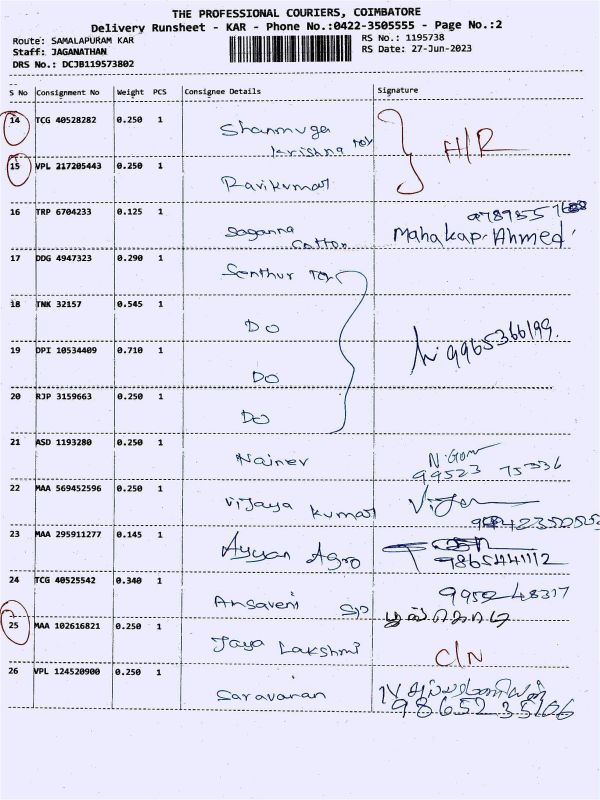 THE PROFESSIONAL COURIERS, COIMBATORE
Delivery Runsheet - KAR - Phone No.:0422-3505555 - Page No.:2
Route: SAMALAPURAM KAR
Staff: JAGANATHAN
DRS No.: DCJB119573802
RS No.: 1195738
RS Date: 27-Jun-2023
S No Consignment No Weight PCS Consignee Details Signature
14 TCG 40528282 0.250 1 Shanmuga
Krishna Tex
15 VPL 217205443 0.250 1 Ravikumar
H/R
16 TRP 6704233 0.125 1
Cotton Ahmed
17 DDG 4947323 0.290 1 Senthur Tex
18 TNK 32157 0.545 1 DO
19 DPI 10534409 0.710 1 DO
9965366199
20 RJP 3159663 0.250 1 DO
21 ASD 1193280 0.250 1
99523 75336
22 MAA 569452596 0.250 1 Vijaya Kumar
23 MAA 295911277 0.145 1 Ayyan Agro
9865441112
24 TCG 40525542 0.340 1 Ansaveni Sp
995248317
25 MAA 102616821 0.250 1 Jaya Lakshmi C/N
26 VPL 124520900 0.250 1 Saravanan
98652 35106